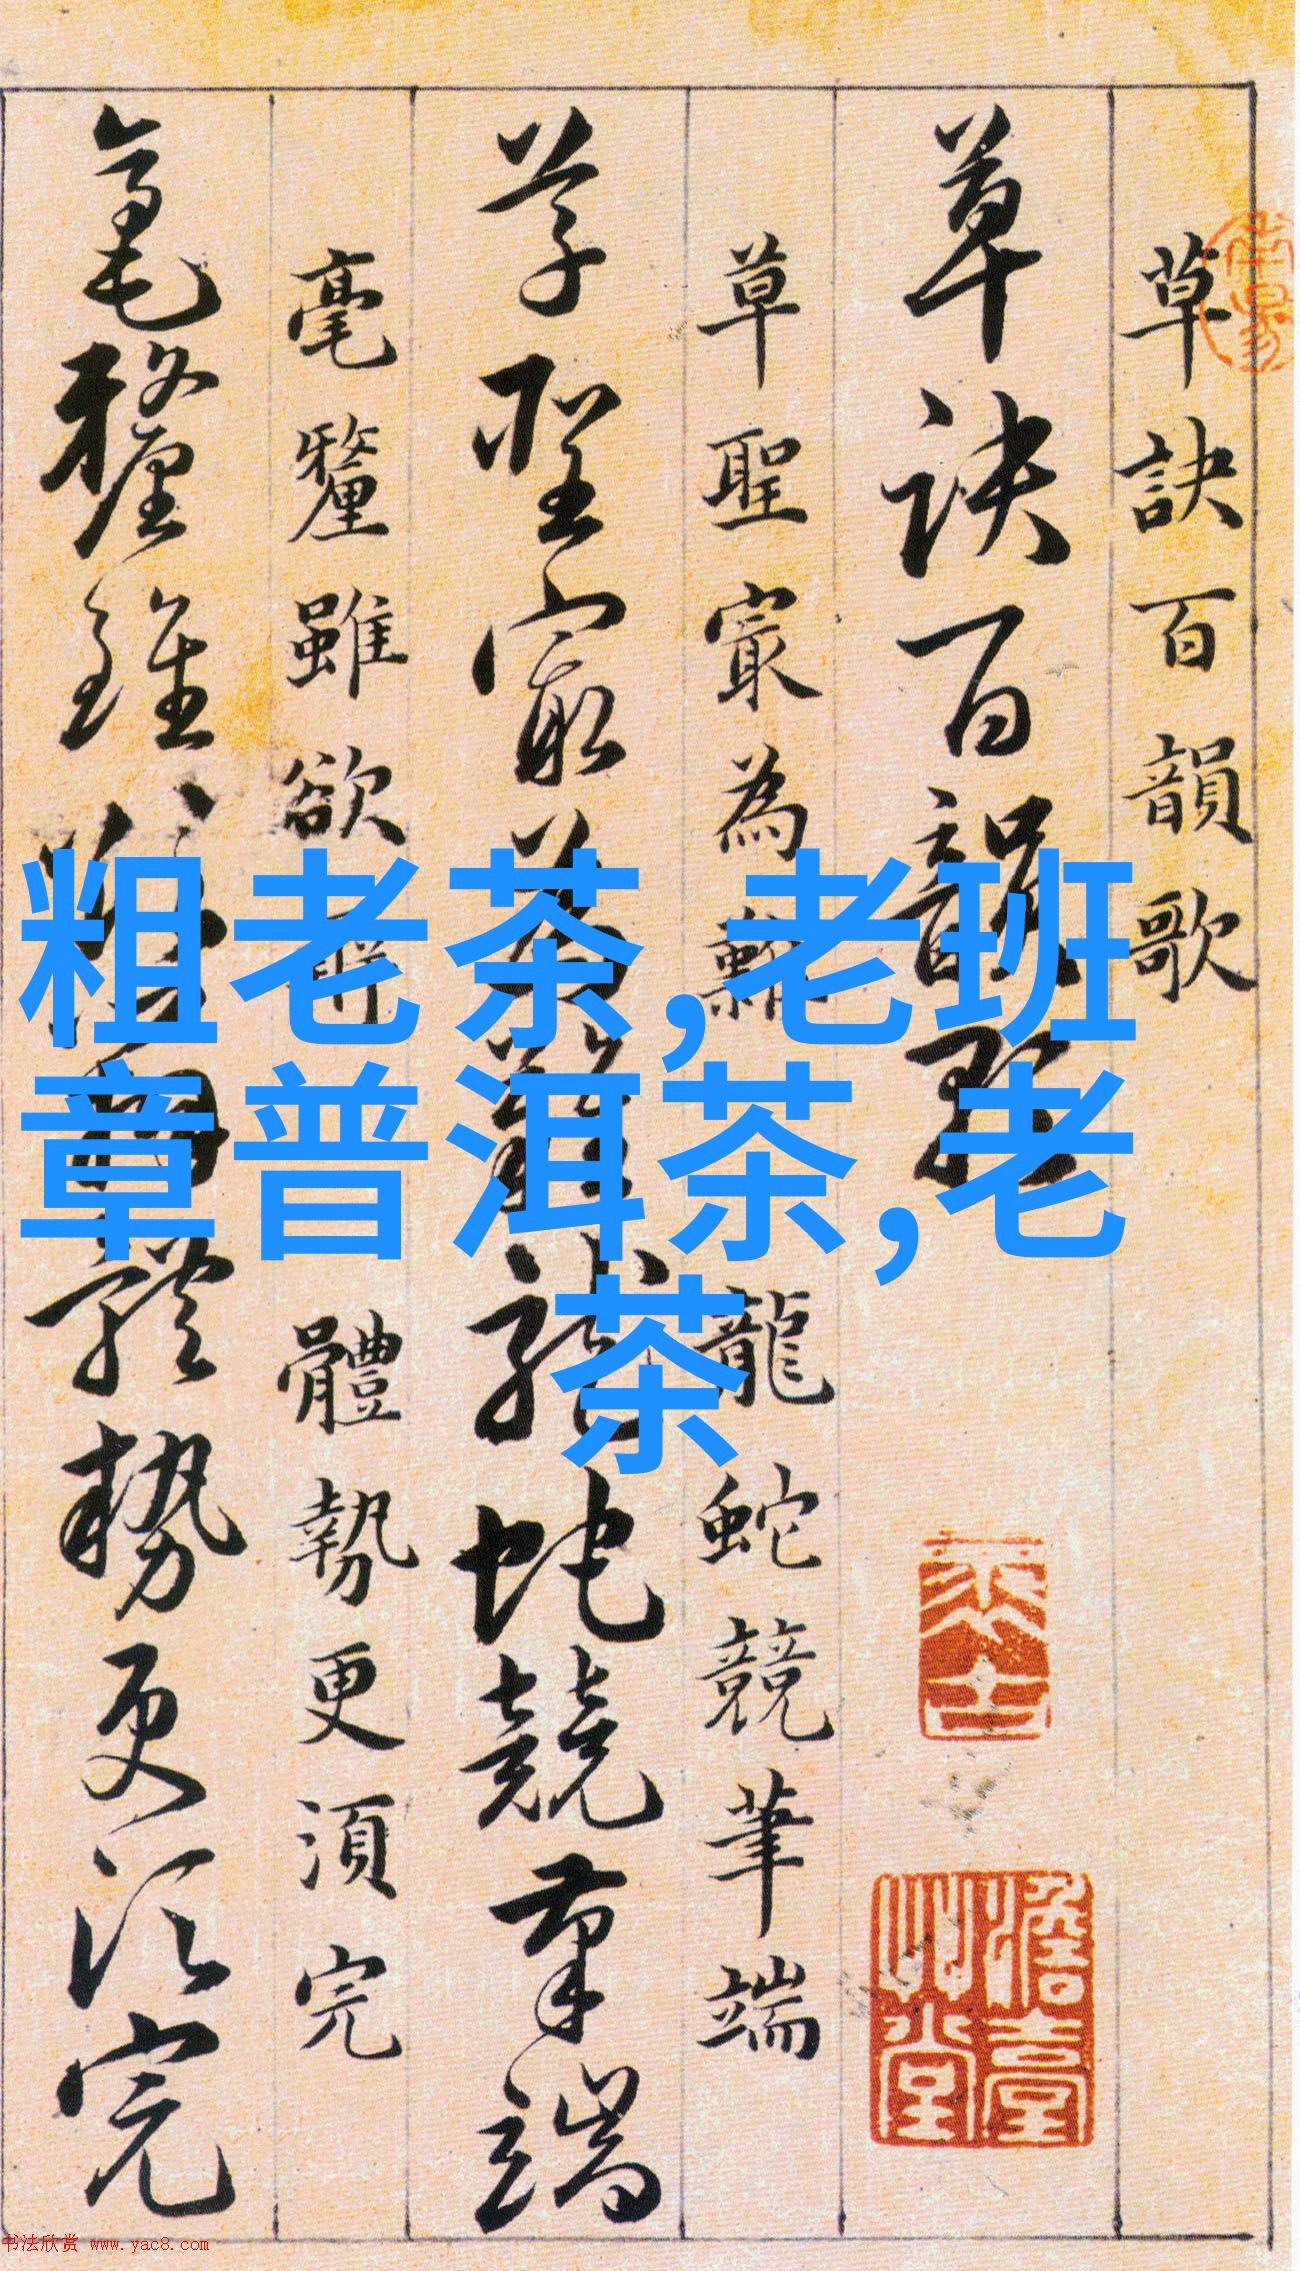 草訣百韻歌
草訣百韻歌
草聖寂為難 龍蛇競筆端
草聖寂為難 龍蛇競筆端
毫釐雖欲辨 體勢更須完
毫釐雖欲 體勢更須完
粗老茶,老班
章普洱茶,老
茶
书法欣赏 www.yac8.com